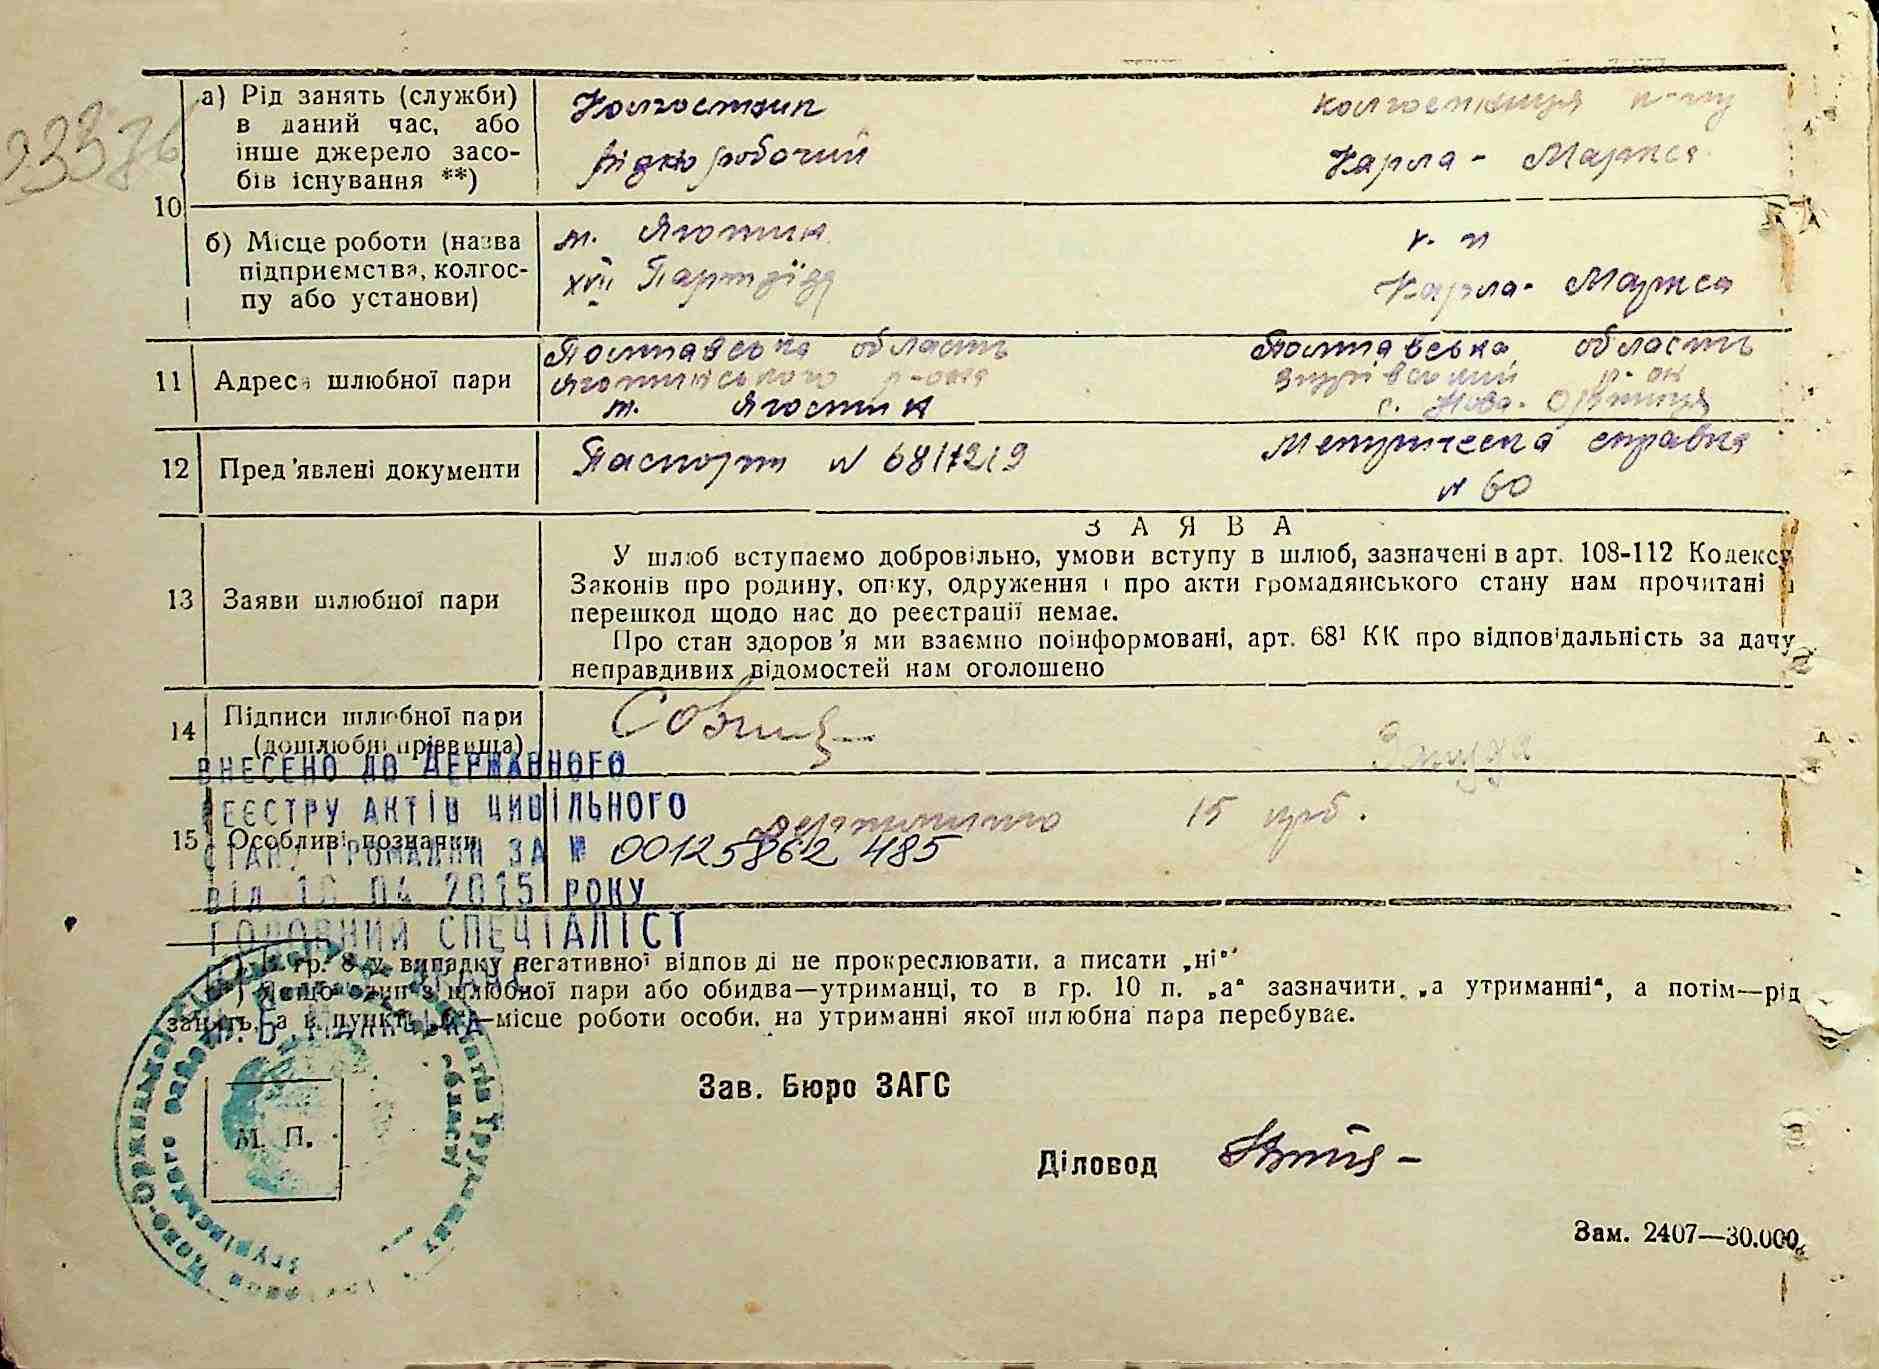 23376
10
а) Рід занять (служби)
в даний час, або
інше джерело засо-
бів існування **)
Колгоспник
робочий
колгоспниця
Карла - Маркса
б) Місце роботи (назва
підприємства, колгос-
пу або установи)
м. Яготин
XVII Партз'їзд
Карла - Маркса
11 Адреса шлюбної пари
Полтавська область
Яготинського р-она
м. Яготин
Полтавська область
Згурівський р-ок
с. Нова-Оржиця
12 Пред'явлені документи
Паспорт N
Метрическа справка
N 60
13 Заяви шлюбної пари
ЗАЯВА
У шлюб вступаємо добровільно, умови вступу в шлюб, зазначені в арт. 108-112 Кодексу
Законів про родину, опіку, одруження і про акти громадянського стану нам прочитані і
перешкод щодо нас до реєстрації немає.
Про стан здоров'я ми взаємно поінформовані, арт. 68¹ КК про відповідальність за дачу
неправдивих відомостей нам оголошено
14 Підписи шлюбної пари
(дошлюбні прізвища)
15 Особливі позначки
15 крб.
ВНЕСЕНО ДО ДЕРЖАВНОГО
РЕЄСТРУ АКТІВ ЦИВІЛЬНОГО
СТАНУ ГРОМАДЯН ЗА № 00125862 485
ВІД 10 04 2015 РОКУ
ГОЛОВНИЙ СПЕЦІАЛІСТ
гр. 8 у випадку негативної відповіді не прокреслювати, а писати „ні“
*) Якщо один з шлюбної пари або обидва—утриманці, то в гр. 10 п. „а“ зазначити „а утриманні“, а потім—рід
занять, а в пункті „б“—місце роботи особи, на утриманні якої шлюбна пара перебуває.
М. П.
Зав. Бюро ЗАГС
Діловод
Зам. 2407—30.000